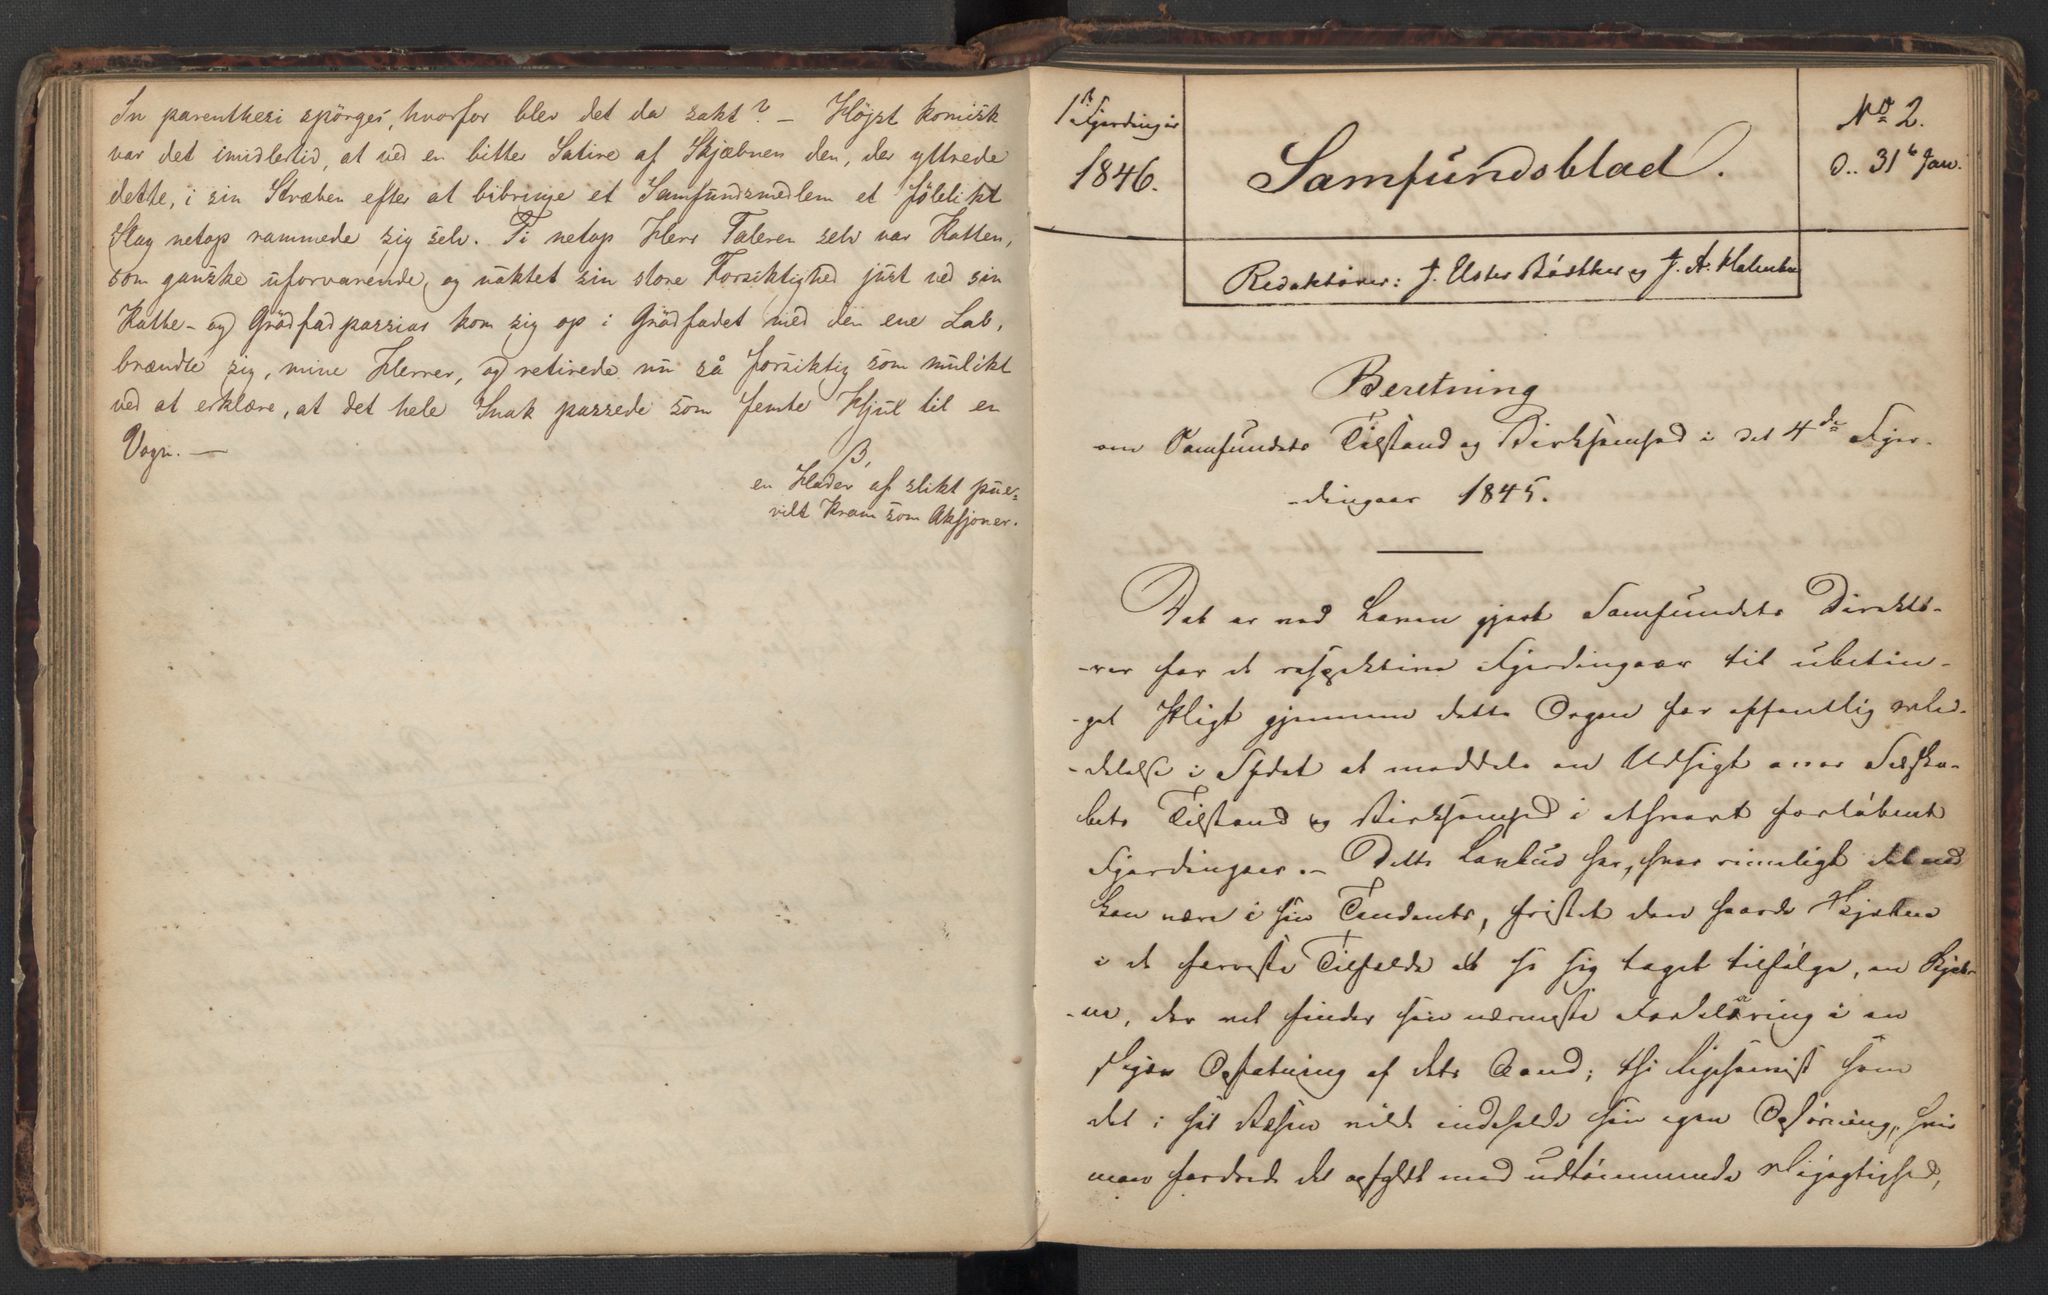 In parenthesi spörges, hvorfor blev det da sakt? — Højst komisk
var det imidlertid, at ved en bitter Satire af Skjæbnen den, der yttrede
dette, i sin Stræben efter at bibringe et Samfundsmedlem et følelikt
Slag netop rammede sig selv. Ti netop Herr Taleren selv var Katten,
som ganske uforvarende, og uaktet sin store Forsiktighed just ved sin
Katte- og Grødfadpassiar kom sig op i Grødfadet med den ene Lab,
brændte sig, mine Herrer, og retirede nu så forsiktig som mulikt
ved at erklære, at det hele Snak passede som femte Hjul til en
Vogn. —
β,
en Hader af slikt pue-
rilt Kram som Aksjoner.
1ste Fjerdingår
1846.
Samfundsblad.
No 2.
D.. 31te Jan.
Redaktører: J. Elster Bödtker og J. A.
Beretning
om Samfundets Tilstand og Virksomhed i det 4de Fjer-
-dingaar 1845.
Det er ved Loven gjort Samfundets Direktø-
-rer for de respektive Fjerdingaar til ubetin-
-get Pligt gjennem dette Organ for offentlig
-delelse i Sfdet at meddele en Udsigt over Selska-
bets Tilstand og Virksomhed i ethvert forløbent
Fjerdingaar. — Dette Lovbud har, hvor rimeligt det end
kan være i sin Tendents, fristet den haarde Skjæbne
i de færreste Tilfælde at se sig taget tilfølge, en Skjæb-
-ne, der vel finder sin nærmeste Forklaring i en
skjæv Opfatning af dets Aand; thi ligesaavist som
det i sit Væsen vilde indeholde sin egen Opløsning, hvis
man fordrede det opfyldt med udtømmende Nøjagtighed,